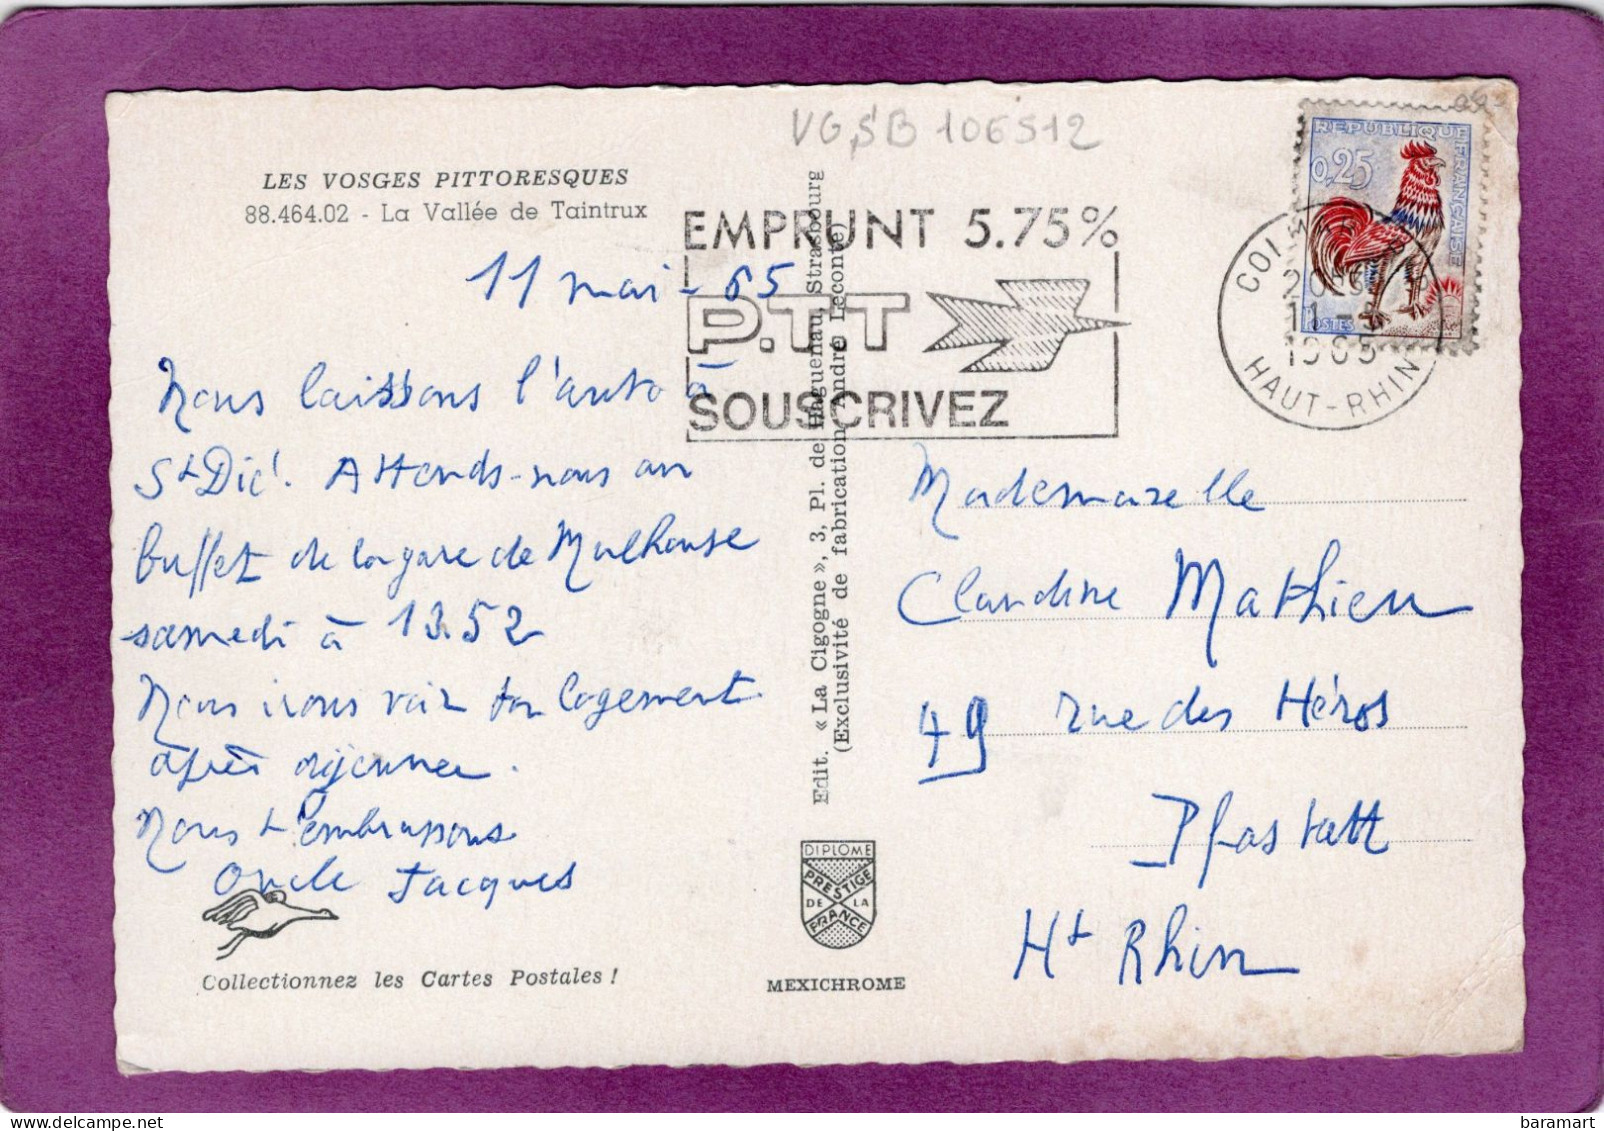 VGSB 106512
LES VOSGES PITTORESQUES
88.464.02 - La Vallée de Taintrux
11 mai - 65
Nous laissons l'auto à
St Dié. Attends-nous au
buffet de la gare de Mulhouse
samedi à 13.52
Nous irons voir ton logement
après déjeuner.
Nous t'embrassons
Oncle Jacques
Collectionnez les Cartes Postales !
Edit. « La Cigogne », 3, Pl. de Haguenau, Strasbourg
(Exclusivité de fabrication André Leconte)
DIPLOME
PRESTIGE
DE LA
FRANCE
MEXICHROME
EMPRUNT 5.75%
P.TT
SOUSCRIVEZ
REPUBLIQUE FRANÇAISE
0,25
POSTES
11 - 5
1965
HAUT-RHIN
Mademoiselle
Claudine Mathieu
49 rue des Héros
Pfastatt
Ht Rhin
baramart